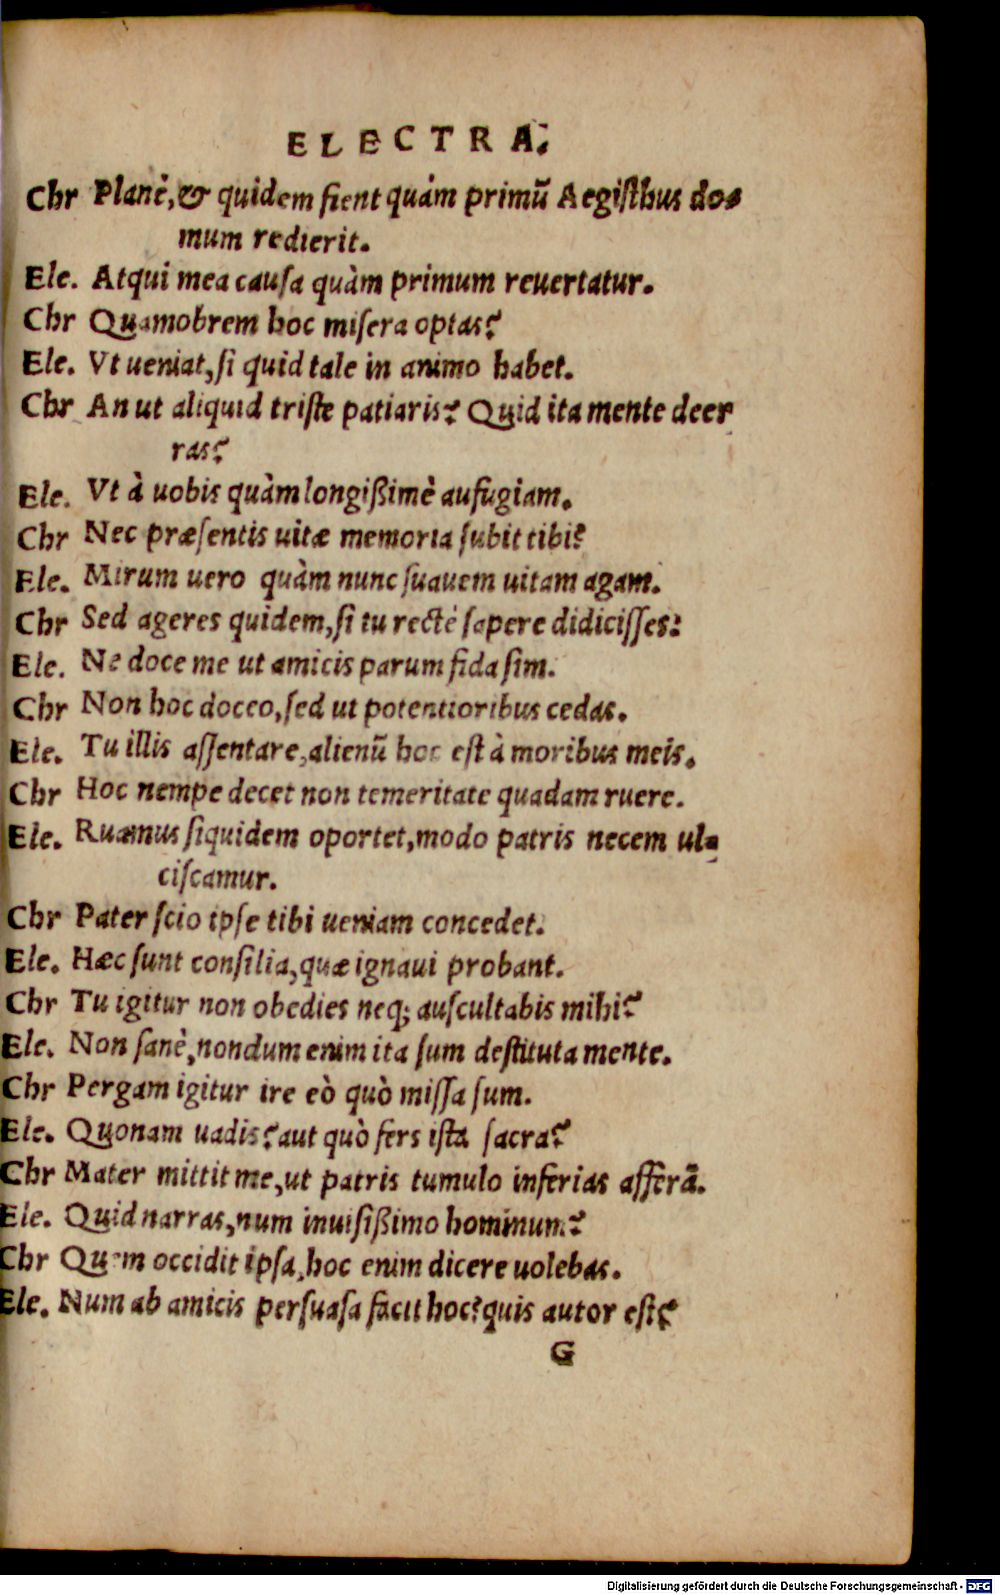 ELECTRA.
Chr Planè, & quidem fient quàm primũ Aegisthus do-
mum redierit.
Ele. Atqui mea causa quàm primum reuertatur.
Chr Quamobrem hoc misera optas?
Ele. Vt ueniat, si quid tale in animo habet.
Chr An ut aliquid triste patiaris? Quid ita mente deer
ras?
Ele. Vt à uobis quàm longißimè aufugiam.
Chr Nec præsentis uitæ memoria subit tibi?
Ele. Mirum uero quàm nunc suauem uitam agam.
Chr Sed ageres quidem, si tu rectè sapere didicisses.
Ele. Ne doce me ut amicis parum fida sim.
Chr Non hoc doceo, sed ut potentioribus cedas.
Ele. Tu illis assentare, alienũ hoc est à moribus meis.
Chr Hoc nempe decet non temeritate quadam ruere.
Ele. Ruamus siquidem oportet, modo patris necem ul-
ciscamur.
Chr Pater scio ipse tibi ueniam concedet.
Ele. Hæc sunt consilia, quæ ignaui probant.
Chr Tu igitur non obedies neq; auscultabis mihi?
Ele. Non sanè, nondum enim ita sum destituta mente.
Chr Pergam igitur ire eò quò missa sum.
Ele. Quonam uadis? aut quò fers ista sacra?
Chr Mater mittit me, ut patris tumulo inferias afferã.
Ele. Quid narras, num inuisißimo hominum?
Chr Quem occidit ipsa, hoc enim dicere uolebas.
Ele. Num ab amicis persuasa facit hoc? quis autor est?
G
Digitalisierung gefördert durch die Deutsche Forschungsgemeinschaft - DFG